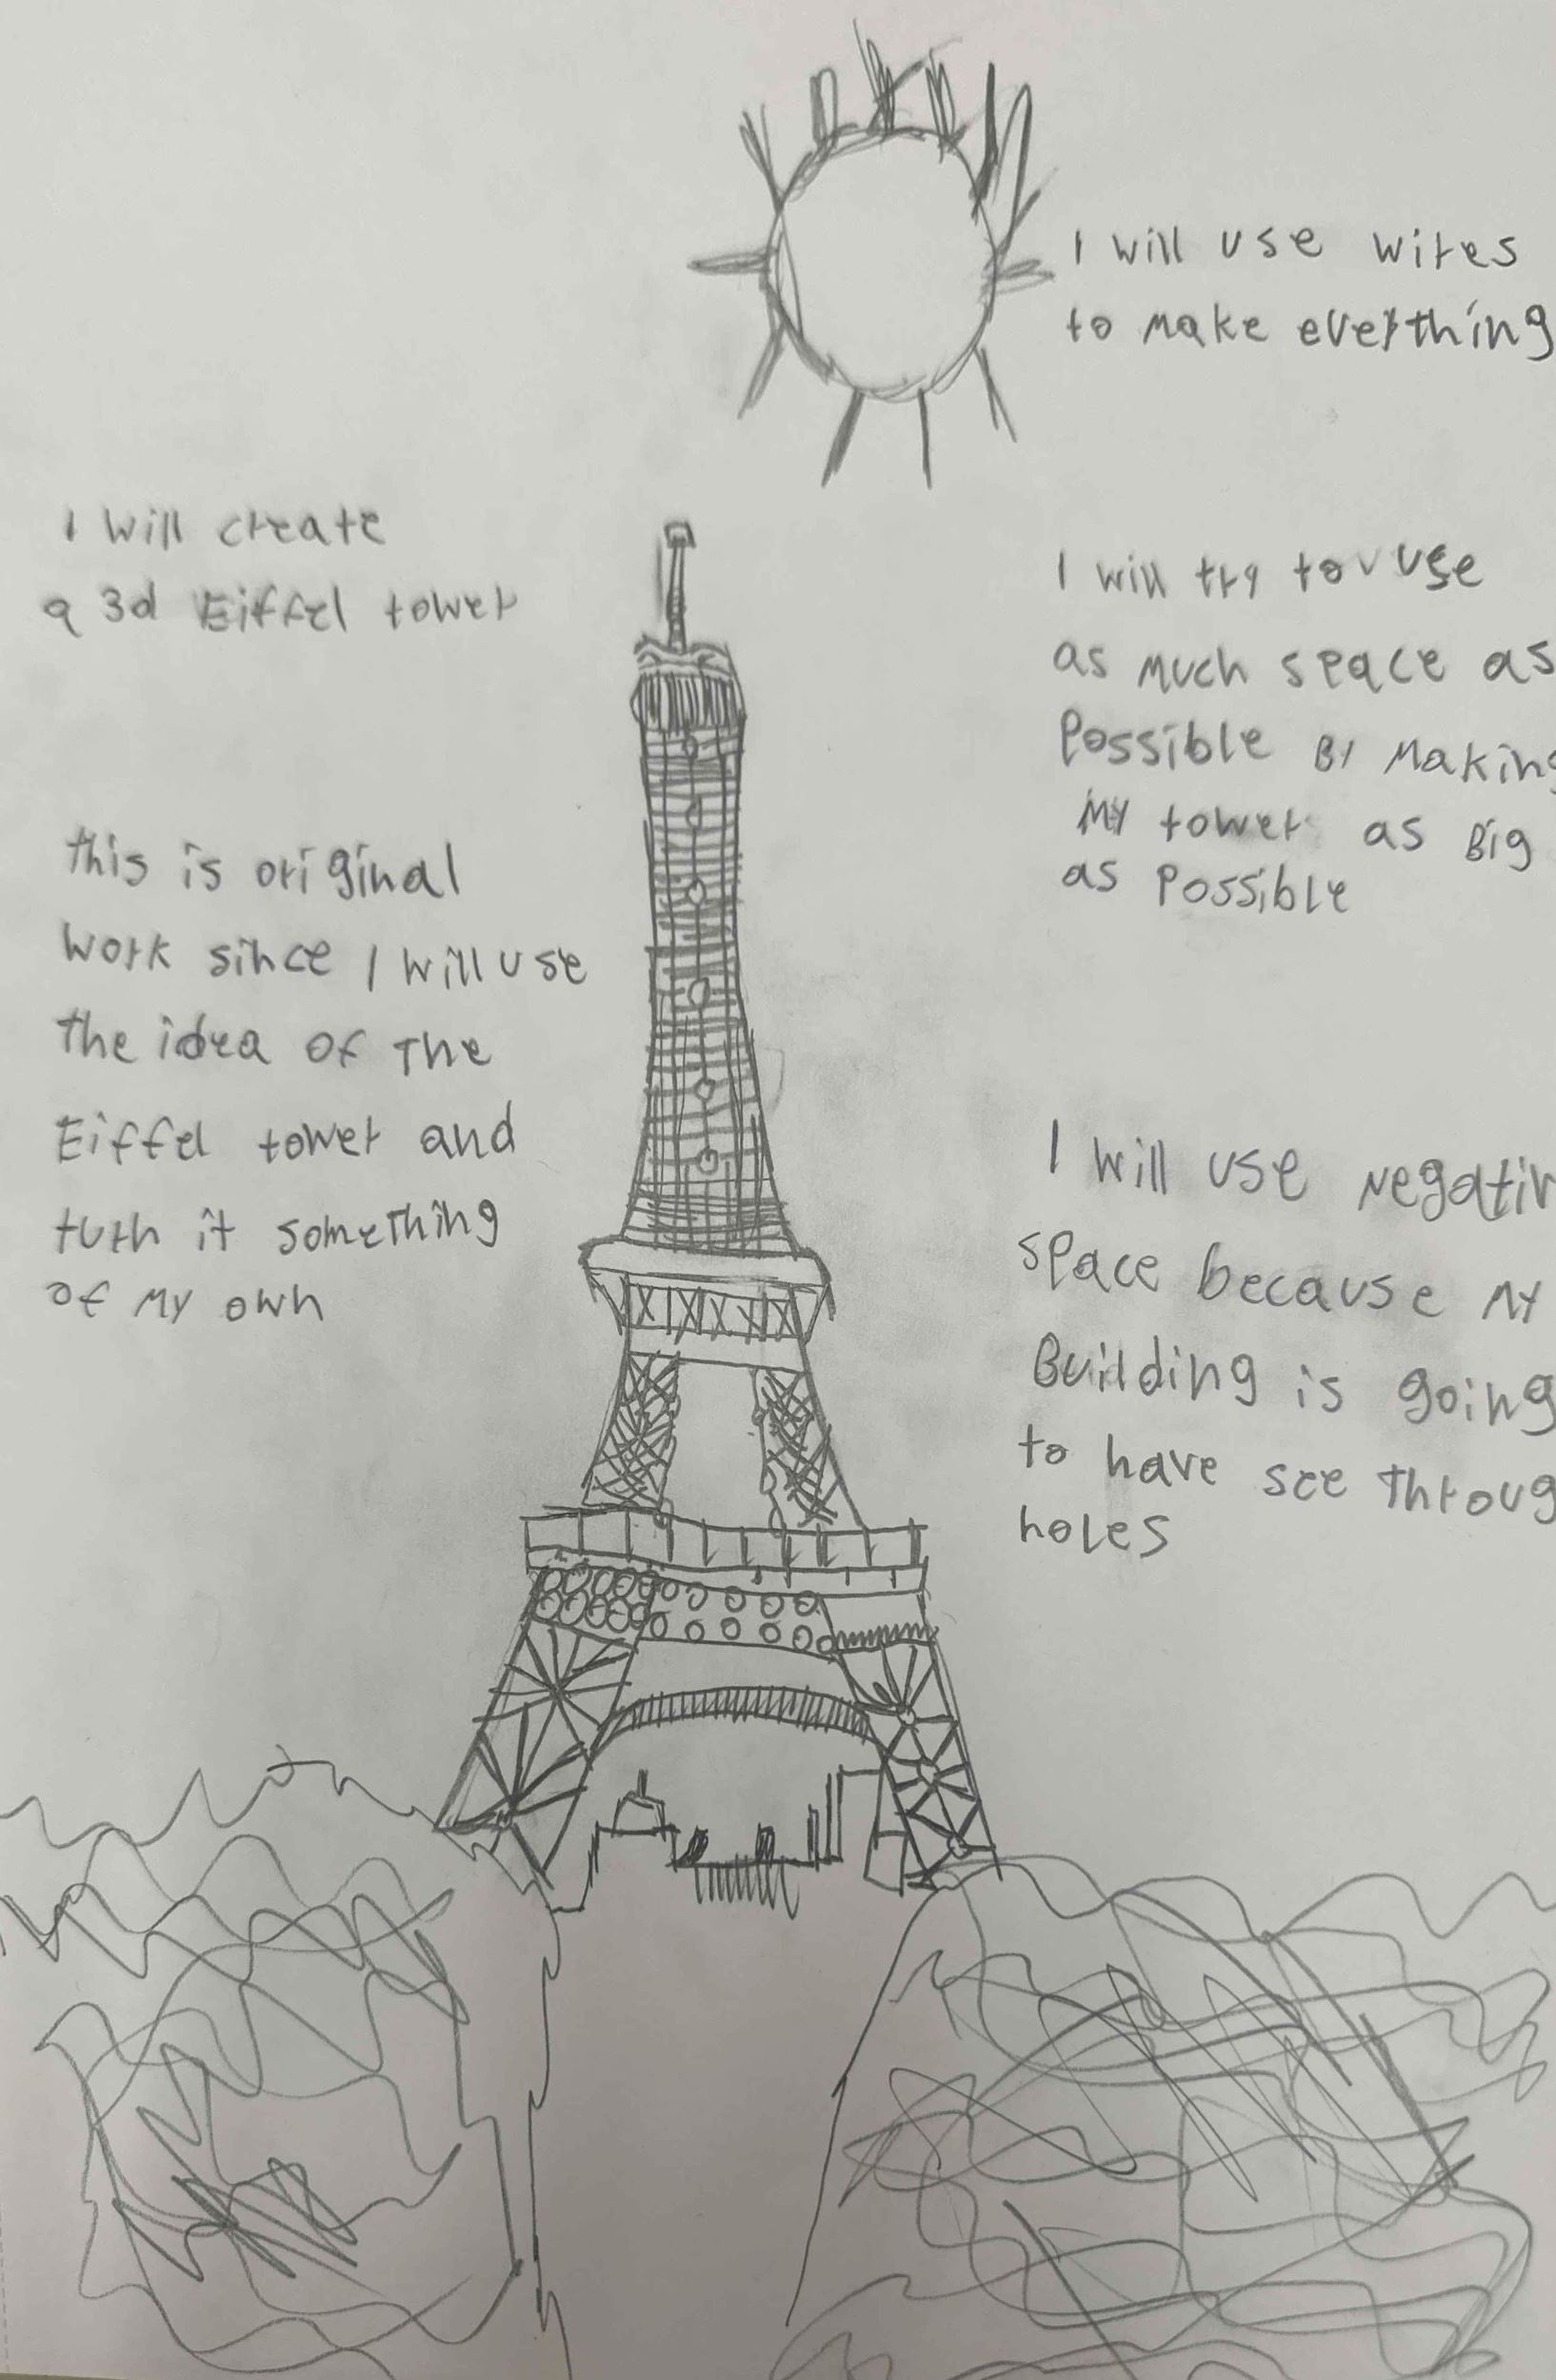 I will use wires
to make everything
I will create
a 3d Eiffel tower
I will try to use
as much space as
Possible By Making
My tower as Big
as Possible
this is original
work since I will use
the idea of The
Eiffel tower and
turn it something
of my own
I will use Negativ
space because My
Building is going
to have see throug
holes